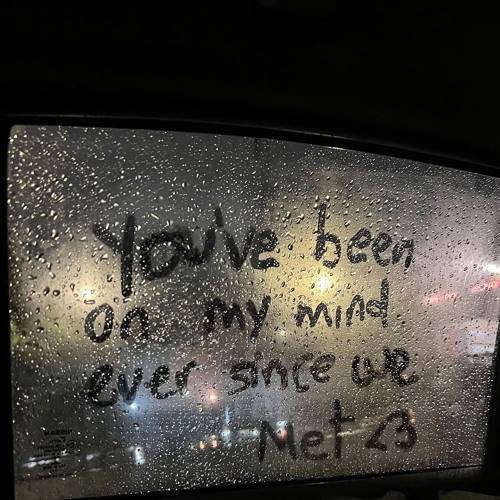 You've been
on my mind
ever since we
Met <3